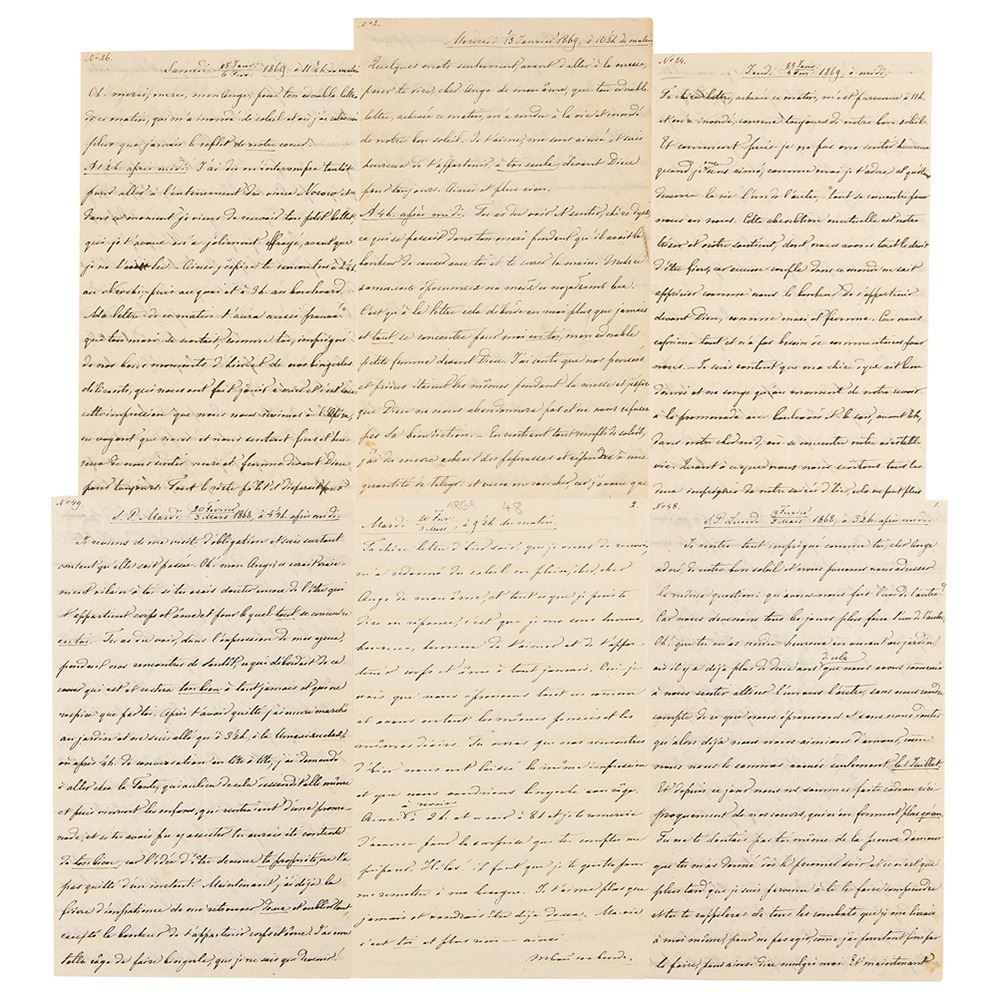 No 26.
Samedi 25 Janv/6 Fevr 1869, à 11 ½ h du matin
Oh merci, merci, mon Ange, pour ton adorable lettre
de ce matin, qui m'a inondé de soleil et où j'ai retrouvé
plus que jamais le reflet de notre coeur.
A 1 ½ h après midi. J'ai dû m'interrompre tantôt
pour aller à l'enterrement du vieux
Dans ce moment je viens de recevoir ton petit billet
qui je t'avoue m'a joliment effrayé, avant que
je ne l'ai lu. Ainsi j'espère te rencontrer à
puis au quai et à 3 h au boulevard.
Ma lettre de ce matin t'aura aussi prouvé
que ton mari se sentait, comme toi, imprégné
de nos bons moments d'hier et de nos bingerles
délirantes, qui nous ont fait jouir à crier et c'est sous
cette impression que nous nous revîmes à
en voyant que nous et nous sentant fiers et heu-
reux de nous sentir mari et femme devant Dieu
pour toujours. Tout le reste pâlit et disparait pour
No 2.
Mercredi 1/13 Janvier 1869, à 10 ½ h du matin
Quelques mots seulement, avant d'aller à la messe,
pour te dire, cher Ange de mon âme, que ton adorable
lettre, achevée ce matin, m'a rendu à la vie et inondé
de notre bon soleil. Je t'aime, me sens aimé et suis
heureux de t'appartenir, à toi seule, devant Dieu
pour toujours. Amen et plus rien.
A 4 h. après midi. Tu as du voir et sentir, chère Dye,
ce qui se passait dans ton mari pendant qu'il avait le
bonheur de causer avec toi et te serrer la main. Nous ne
sommes
C'est qu'à la lettre cela déborde en moi plus que jamais
et tout se concentre pour moi en toi, mon adorable
petite femme devant Dieu. J'ai senti que nos pensées
et prières étaient les mêmes pendant la messe et j'espère
que Dieu ne nous abandonnera pas et ne nous refusera
pas Sa bénédiction. En rentrant tout gonflé de soleil,
j'ai dû encore achever des paperasses et répondre à une
quantité de télégr. et veux me coucher, car j'avoue que
No 24.
Jeudi 23 Janv/4 Fevr 1869, à midi.
Ta chère lettre, achevée ce matin, m'est parvenue à 11 h.
et m'a inondé, comme toujours de notre bon soleil.
Et comment puis-je ne pas me sentir heureux
quand je me sens aimé, comme moi je t'adore et qu'étant
devenus la vie l'un de l'autre, tout se concentre pour
nous en nous. Cette absorbtion mutuelle est notre
trésor et notre sentiment, dont nous avons tout le droit
d'être fiers, car aucun couple dans ce monde ne sait
apprécier comme nous le bonheur de s'appartenir
devant Dieu, comme mari et femme. Cela nous
exprime tout et n'a pas besoin de commentaires pour
nous. Je suis content que ma chère Dye ait bien
dormi et ne songe qu'au moment de notre revoir
à la promenade au boulevard et le soir, avant 8 h,
dans notre cher nid, où se concentre notre véritable
vie. Quant à ce que nous nous sentons tous les
deux imprégnés de notre soirée d'hier, cela ne peut plus
No 49.
S. P. Mardi 20 Fevrier/3 Mars 1868, à 4 ½ h après midi.
Je reviens de ma visite d'obligation et suis surtout
content qu'elle soit passée. Oh mon Ange, ce serait vrai-
ment vilain à toi si tu osais douter encore de l'être qui
t'appartient corps et âme et pour lequel tout se concentre
en toi. Tu as du voir, dans l'expression de mes yeux,
pendant nos rencontres de tantôt, ce qui débordait de ce
coeur qui est et restera ton bien à tout jamais et qui ne
respire que par toi. Après t'avoir quitté j'ai encore marché
au jardin et ne suis allé qu'à 3 ½ h, à la
où après ½ h de conversation en tête à tête, j'ai demandé
à aller chez la Tante, qui au lieu de cela descendit elle même
et puis vinrent les enfans, qui rentraient d'une prome-
nade, et si tu avais pu y assister tu aurais été contente
de ton bien, car l'idée d'être devenu ta propriété, ne l'a
pas quitté d'un instant. Maintenant, j'ai déjà la
fièvre d'impatience de me retrouver deux et oublier tout
excepté le bonheur de t'appartenir corps et âme. J'ai une
telle rage de faire bingerle, que je ne sais que devenir.
1868 48 2.
Mardi 20 Fevr/3 Mars à 9 ½ h du matin.
Ta chère lettre d'hier soir, que je viens de recevoir,
m'a redonné du soleil en plein, cher, cher
Ange de mon âme, et tout ce que je puis te
dire en réponse, c'est que je me sens heureux,
heureux, heureux de t'aimer et de t'appar-
tenir corps et âme à tout jamais. Oui je
vois que nous éprouvons tout en commun
et avons en tout les mêmes pensées et les
mêmes désirs. Tu avoues que nos rencontres
d'hier nous ont laissé la même impression
et que nous voudrions bingerle
à revoir
Ainsi à 2 h et au soir à 8 h et je te remercie
d'avance pour la surprise que tu comptes me
préparer. Hélas! il faut que je te quitte pour
me remettre à ma besogne. Je t'aime plus que
jamais et voudrais être déjà deux. Ma vie
c'est toi et plus rien — ainsi
Mbou na bcerda.
No 48.
S. P. Lundi 19 Fevrier/2 Mars 1868, à 3 ½ h après midi.
Je rentre tout imprégné comme toi, cher Ange
adoré, de notre bon soleil et nous pouvons nous adresser
la même question: qu'avons nous fait l'un de l'autre?
Car nous devenons tous les jours plus fous l'un de l'autre.
Oh, que tu m'as rendu heureux en venant au jardin
où il y a déjà plus de deux ans de cela que nous avons commencé
à nous sentir attirés l'un vers l'autre, sans nous rendre
compte de ce que nous éprouvions et sans nous douter
qu'alors déjà nous nous aimions d'amour, comme
nous nous le sommes avoués seulement le Juillet.
Et depuis ce jour nous nous sommes fait cadeau réci-
proquement de nos coeurs, qui n'en forment plus qu'un.
Tu ne te doutais pas toi même de la preuve d'amour
que tu m'as donné le premier soir et ce n'est que
plus tard que je suis parvenu à te le faire comprendre
et tu te rappelleras de tous les combats que je me livrais
à moi même, pour ne pas agir, comme j'ai pourtant fini par
le faire, pour ainsi dire malgré moi. Et maintenant